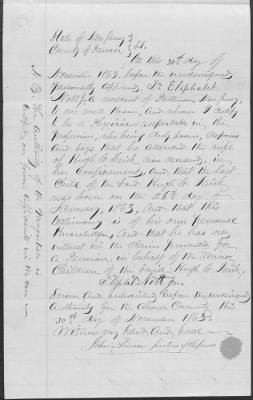 State of New Jersey }
County of Passaic } S.S.
On this 30th day of
November 1863, before the undersigned
personally appeared, Dr Eliphalet
Nott, a resident of Patterson New Jersey,
to me well known, and whom I certify
to be a Physician respectable in the
profession, who being duly sworn, deposes
and says that he attended the wife
of Hugh C. Irish, now deceased, in
her confinement, and that the last
Child of the said Hugh C. Irish
was born on the 26th day of
1863, and that this
testimony is of his own personal
knowledge, and that he has no
interest in the claim presented for
a Pension, in behalf of the Minor
Children of the said Hugh C. Irish.
Elipht Nott Jr.
Sworn and subscribed before the undersigned
authority for the above County this
30th day of November 1863.
Witness my hand and seal
John justice of the peace
N.B. The authority of the Magistrate is
on in the case